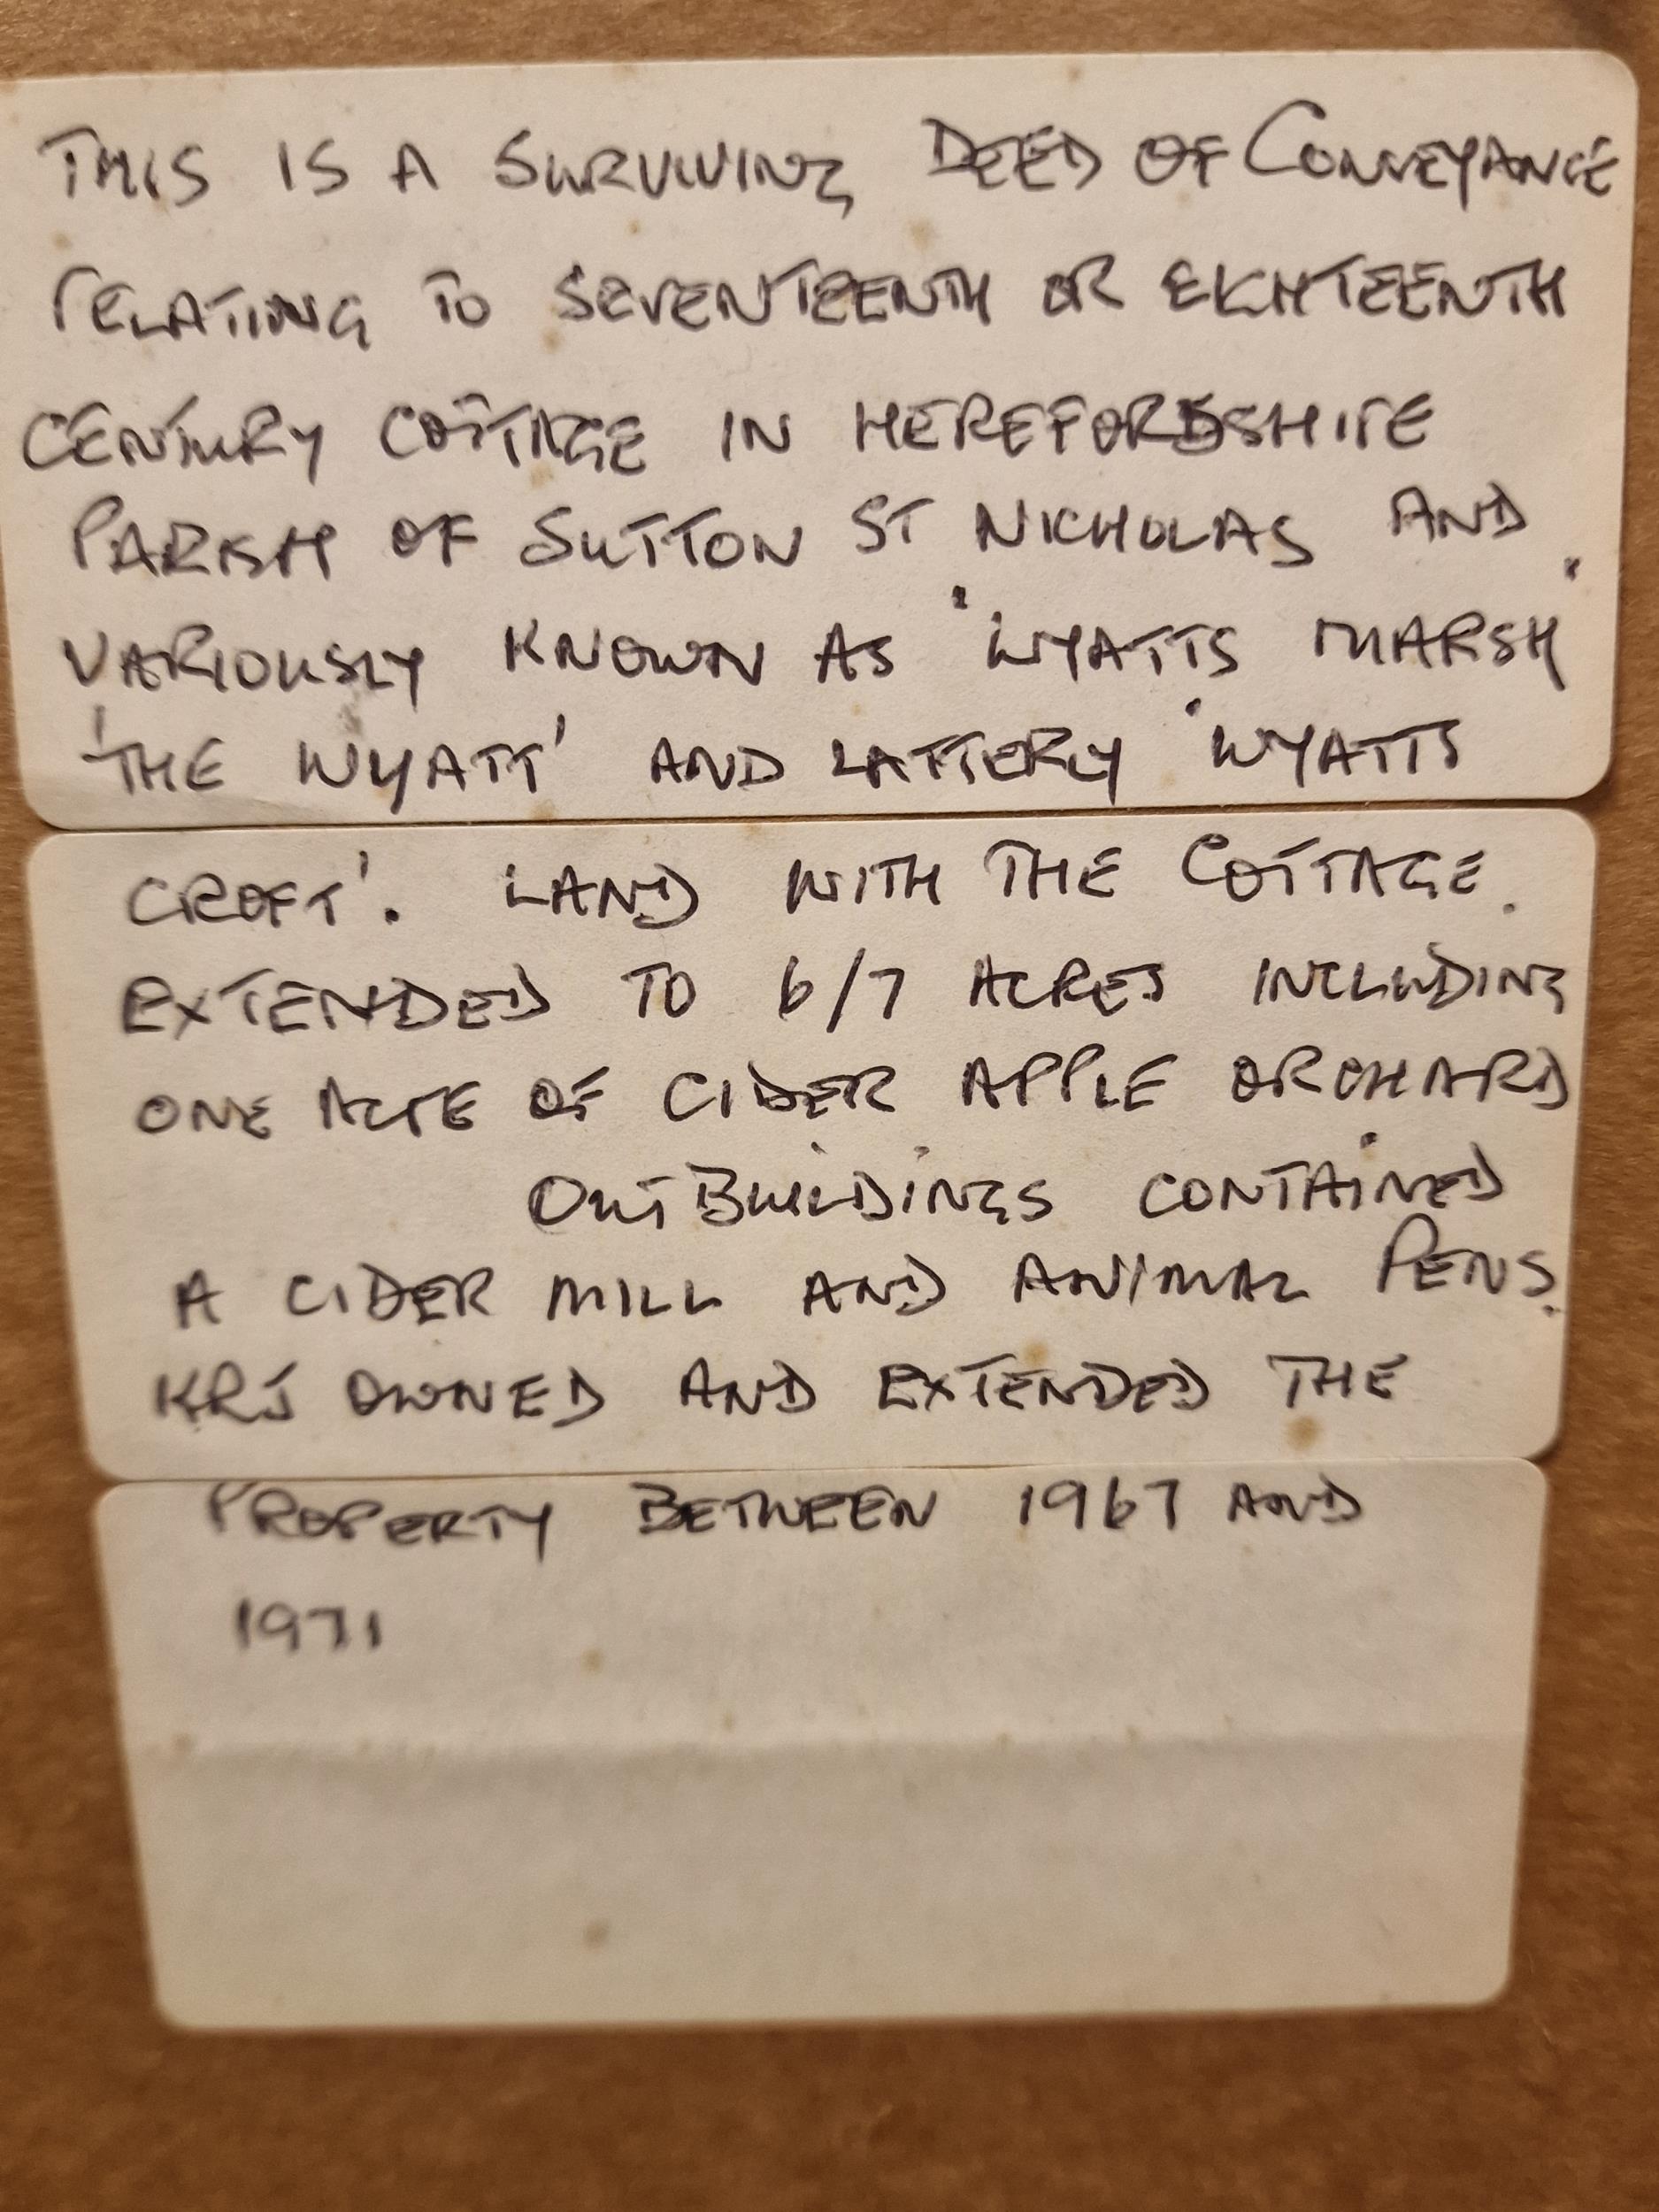 THIS IS A SURVIVING DEED OF CONVEYANCE
RELATING TO SEVENTEENTH OR EIGHTEENTH
CENTURY COTTAGE IN HEREFORDSHIRE
PARISH OF SUTTON ST NICHOLAS AND
VARIOUSLY KNOWN AS 'WYATTS MARSH'
'THE WYATT' AND LATTERLY 'WYATTS
CROFT'. LAND WITH THE COTTAGE
EXTENDED TO 6/7 ACRES INCLUDING
ONE ACRE OF CIDER APPLE ORCHARD
OUTBUILDINGS CONTAINED
A CIDER MILL AND ANIMAL PENS.
KRJ OWNED AND EXTENDED THE
PROPERTY BETWEEN 1967 AND
1971